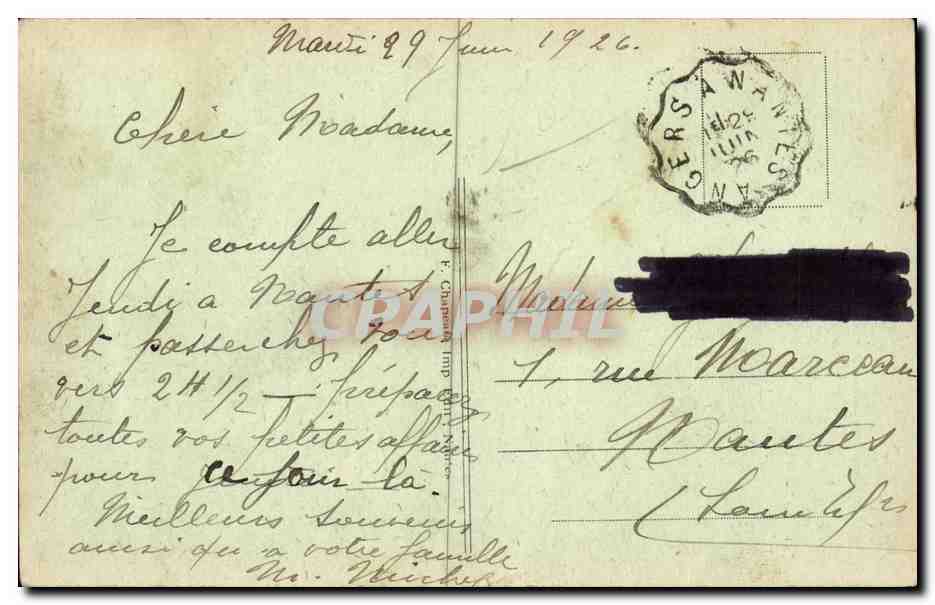 Mardi 29 Juin 1926.
Chère Madame,
Je compte aller
Jeudi a Nantes
et passer chez vous
vers 2H 1/2 — préparez
toutes vos petites affaires
pour ce jour là.
Meilleurs souvenirs
ainsi qu'a votre famille
M. Michel
F. Chapeau, Imp. Edit. Nantes
ANGERS A NANTES
29
JUIN
26
Madame
1, rue Marceau
Nantes
(Loire Infre
CPAPHIL